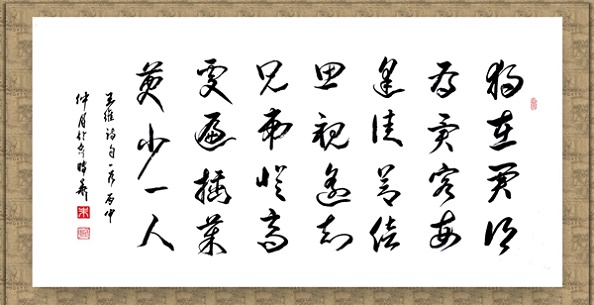 獨在異鄉
為異客每
逢佳節倍
思親遙知
兄弟登高
處遍插茱
萸少一人
王維詩句